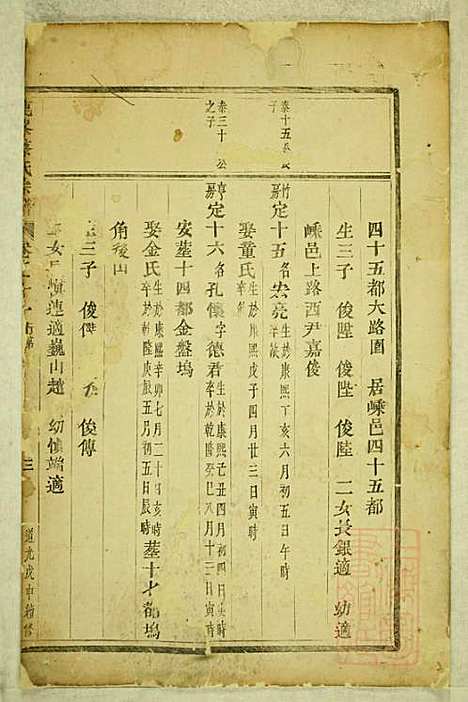 四十五都大路圊 居嵊邑四十五都
生三子 俊陞 俊陛 俊陸 二女長銀適 幼適
嵊邑上路西尹嘉俊
泰十五
之子
竹房定十五名宏亮生於康熙丁亥六月初五日午時
娶童氏生於康熙戊子四月廿三日寅時
泰三十公
之子
亨房定十六名孔懷字德君生於康熙己丑四月初四日 時卒於乾隆癸巳八月十一日寅時
安塟十四都金盤塢
娶金氏生於康熙辛卯七月二十日亥時卒於乾隆庚戌五月初五日辰時塟十 都塢
角後山
三子 俊傑 俊傳
女 適巍山趙 幼 適
氏宗譜
三
道光戊申